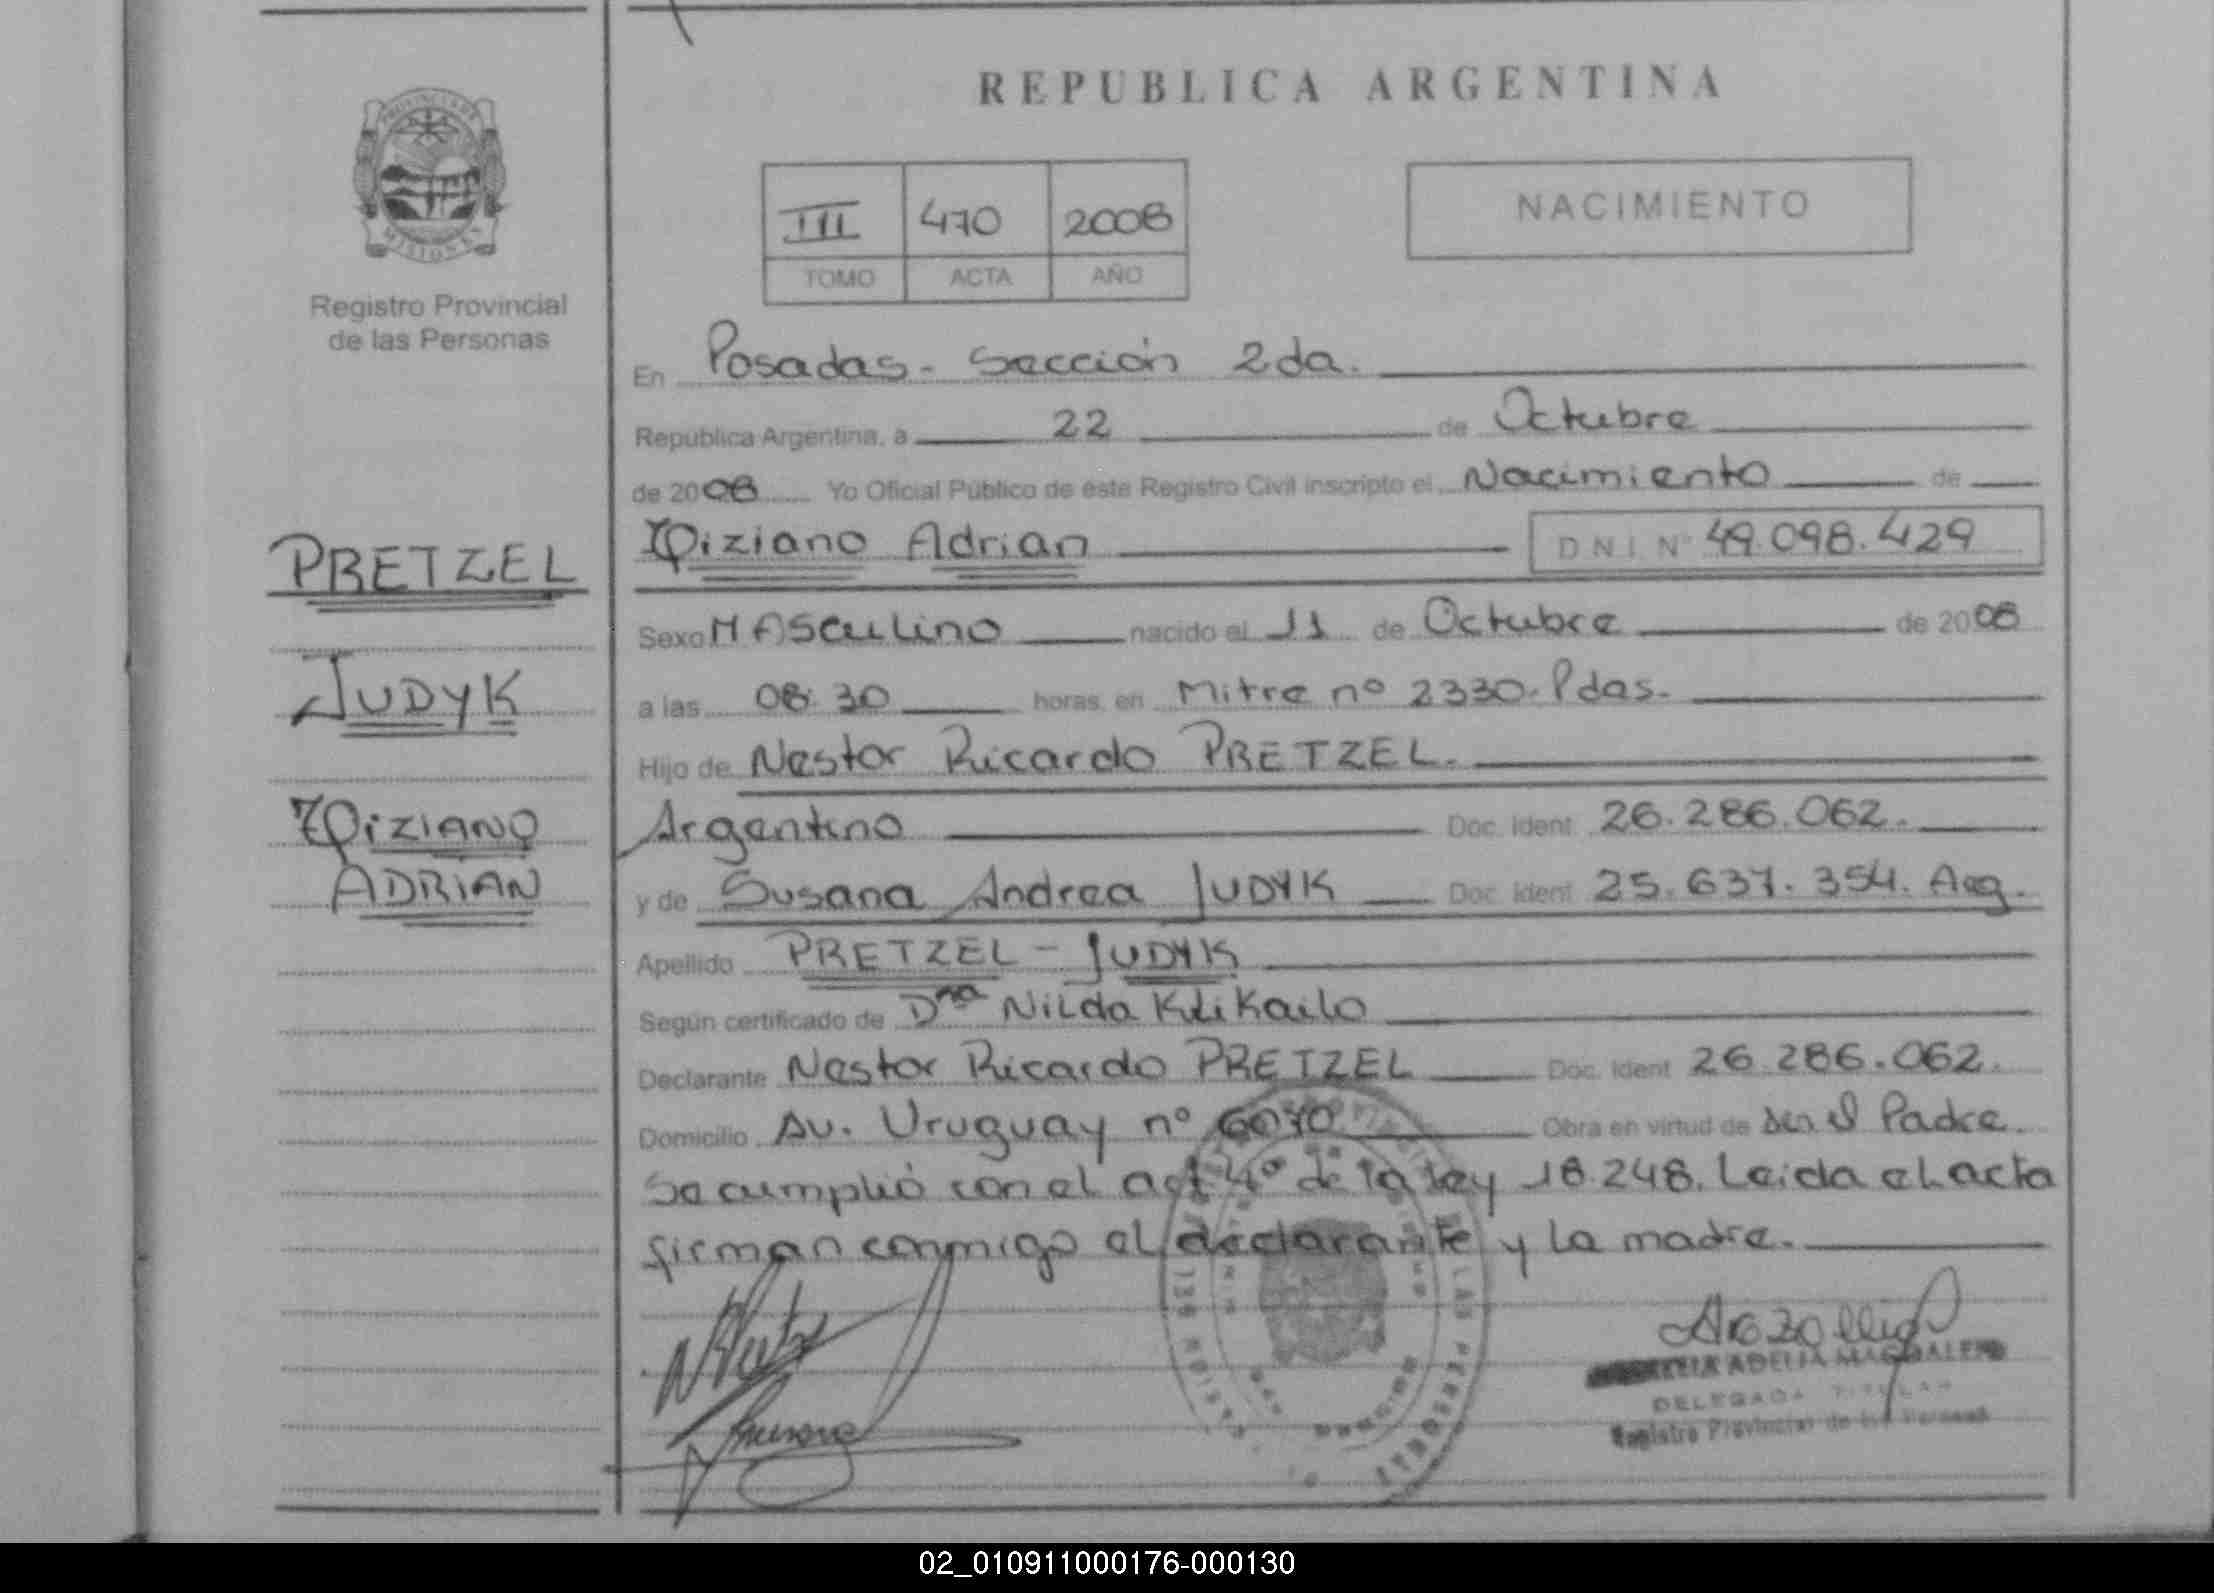 REPUBLICA ARGENTINA
PROVINCIA DE
MISIONES
Registro Provincial
de las Personas
III 470 2008
TOMO ACTA AÑO
NACIMIENTO
En Posadas - Sección 2da.
República Argentina, a 22 de Octubre
de 2008 Yo Oficial Público de este Registro Civil inscripto el Nacimiento de
Tiziano Adrian D N I Nº 49.098.429
PRETZEL
JUDYK
TIZIANO
ADRIAN
Sexo MASculino nacido el 11 de Octubre de 2008
a las 08:30 horas, en Mitre nº 2330. Pdas.
Hijo de Nestor Ricardo PRETZEL.
Argentino Doc. Ident 26.286.062.
y de Susana Andrea JUDYK Doc. Ident 25.637.354. Arg.
Apellido PRETZEL - JUDYK
Según certificado de Dra Nilda
Declarante Nestor Ricardo PRETZEL Doc. Ident 26.286.062.
Domicilio Av. Uruguay nº 6070 Obra en virtud de ser el Padre.
Se cumplió con el art 4º de la Ley 18.248. Leida el acta
firman conmigo el declarante y la madre.
ADELIA MAGDALENA
DELEGADA TITULAR
Registro Provincial de las Personas
02_010911000176-000130